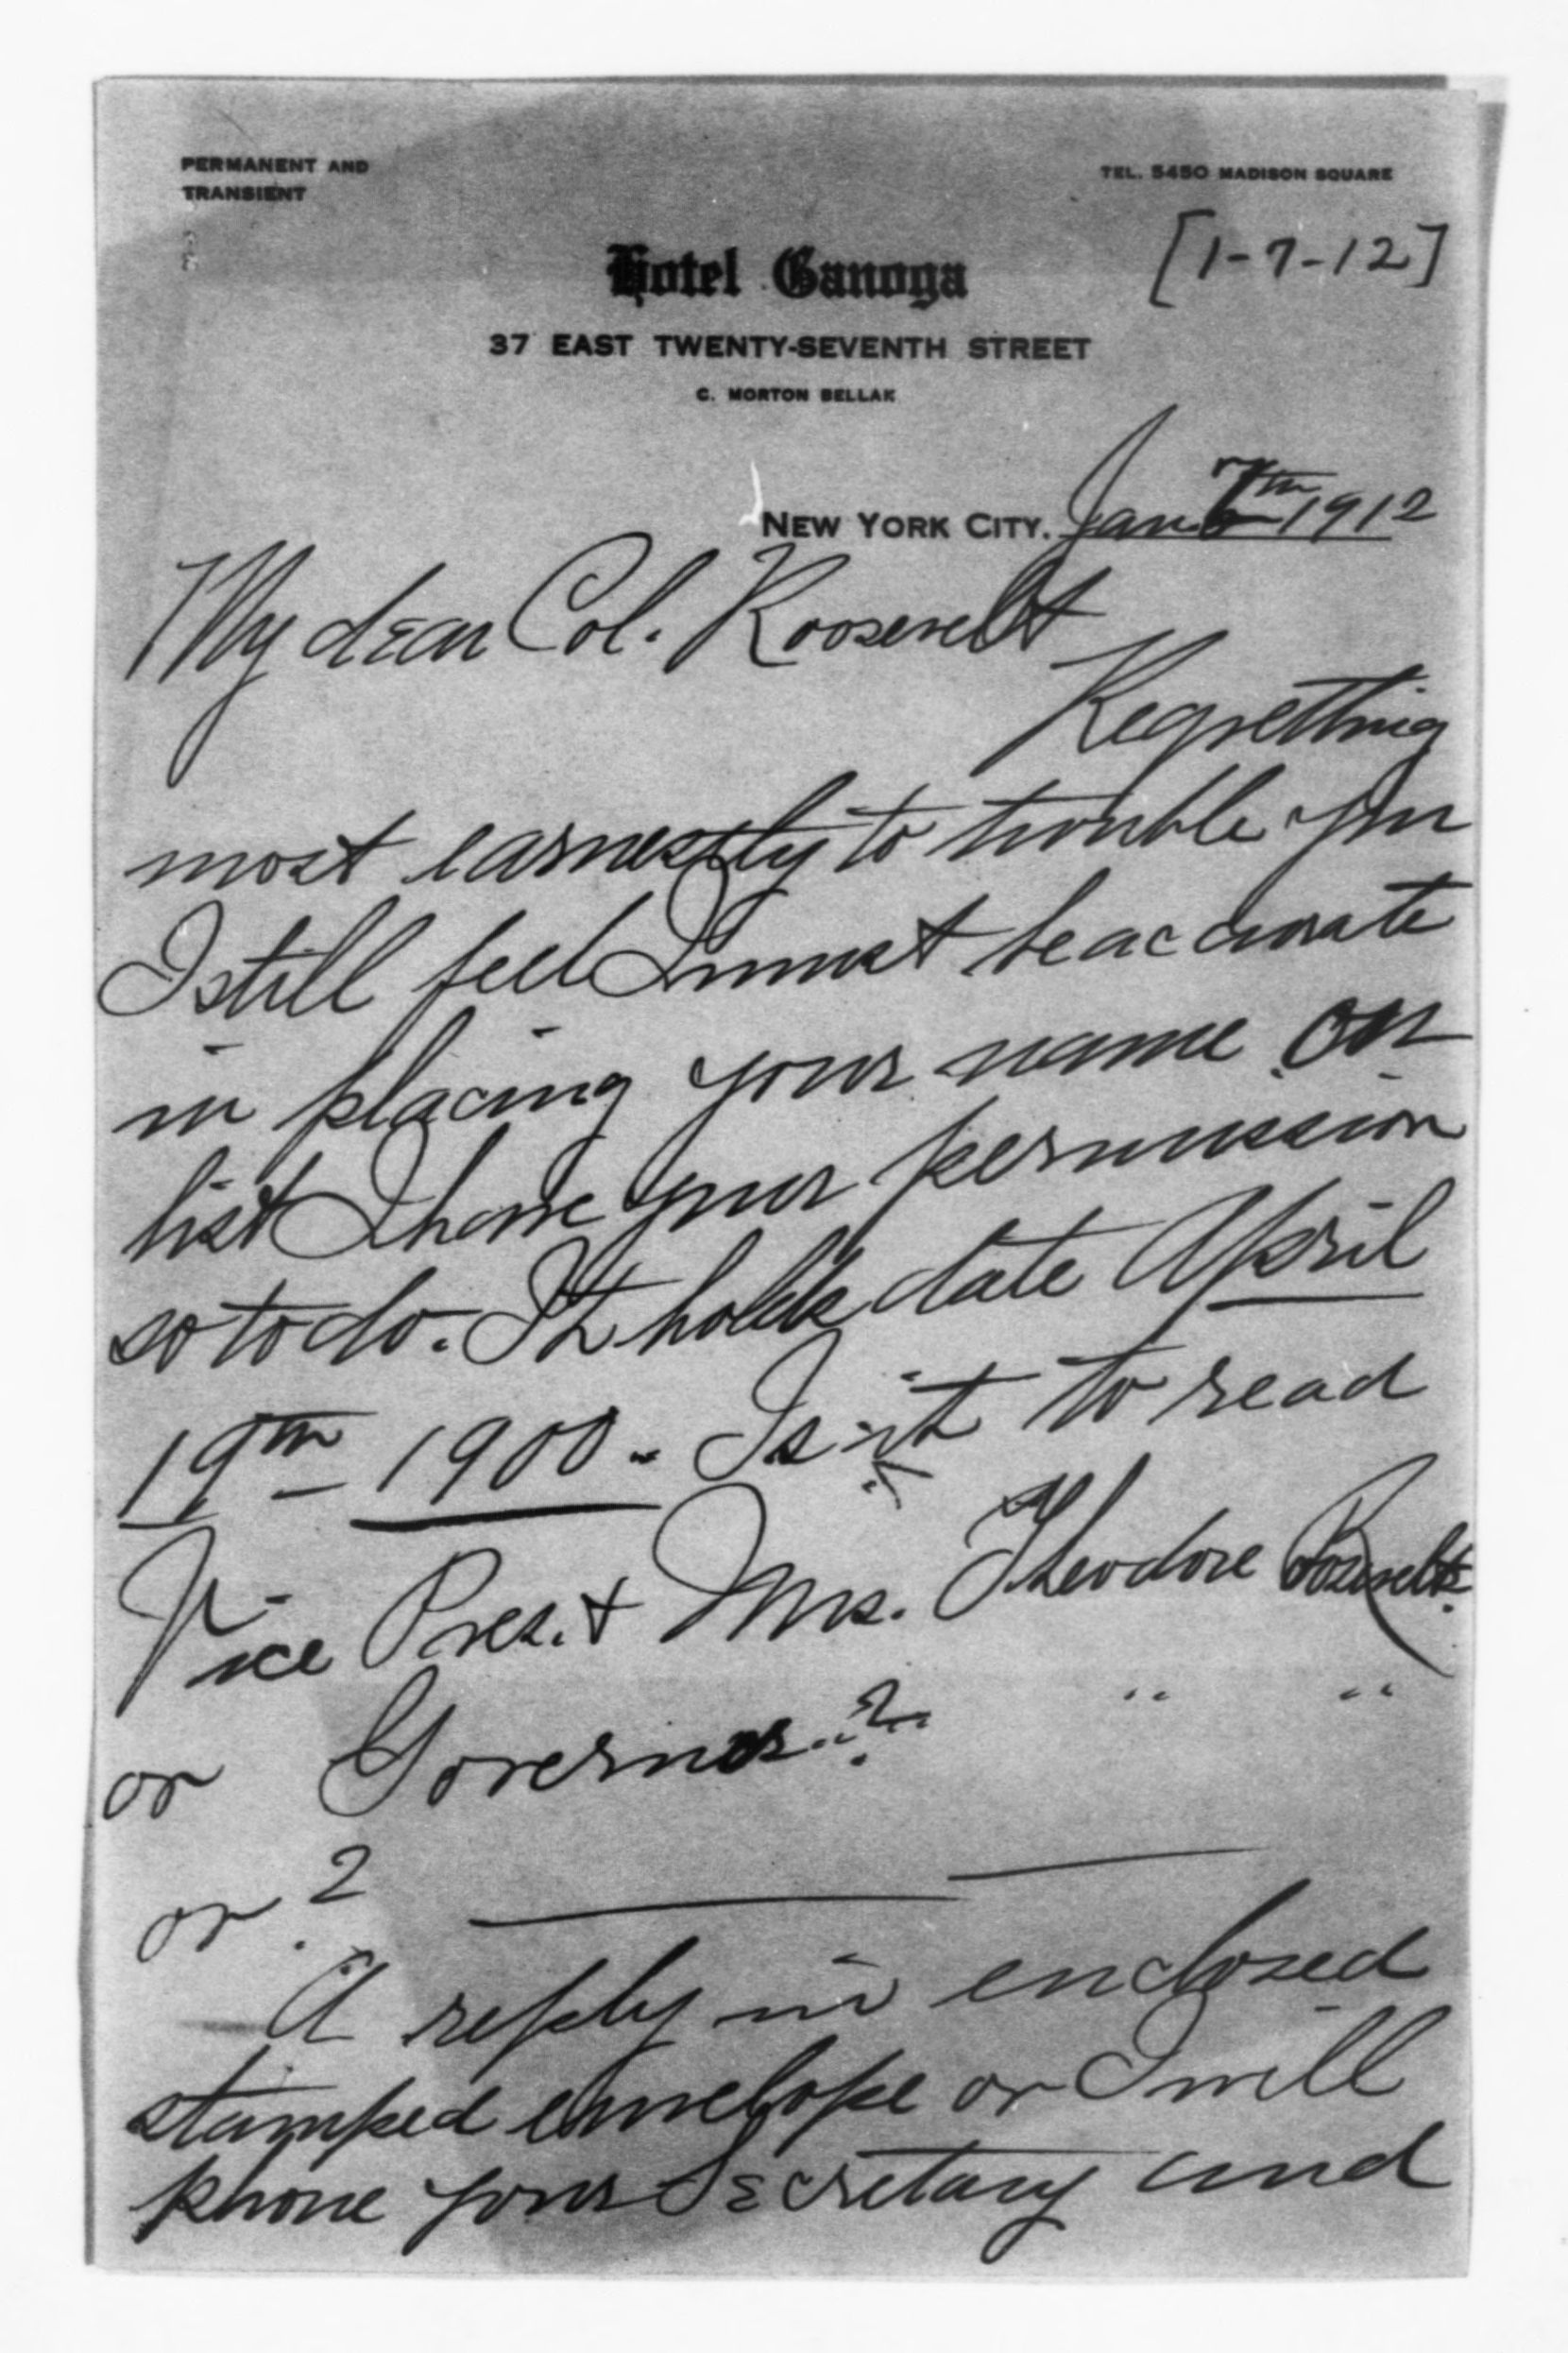 PERMANENT AND
TRANSIENT
TEL. 5450 MADISON SQUARE
[1-7-12]
Hotel Ganoga
37 EAST TWENTY-SEVENTH STREET
C. MORTON BELLAK
NEW YORK CITY. Jan. 7th 1912
My dear Col. Roosevelt
Regretting
most earnestly to trouble you
I still feel I must be accurate
in placing your name on
list I have your permission
so to do. It holds date April
19th - 1900. Is it to read
Vice Pres. & Mrs. Theodore Roosevelt
or Governor " ? " "
or ?
A reply in enclosed
stamped envelope or I will
phone your Secretary and